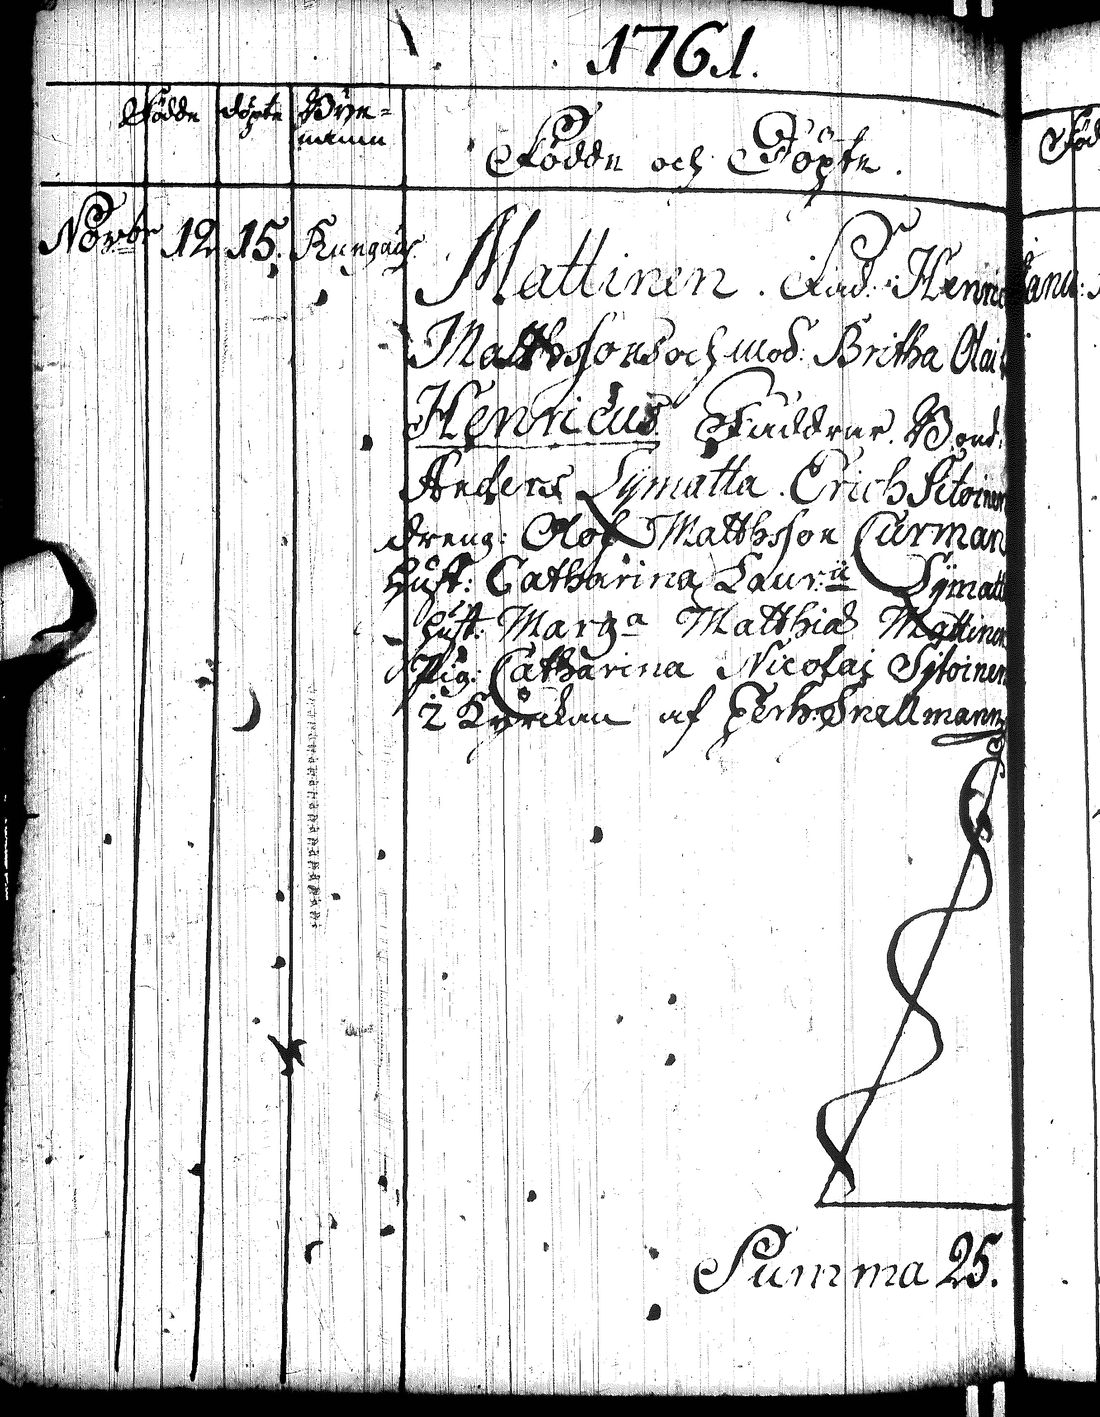 1761.
Födde döpte Byenamn
Födde och Döpte.
Novbr 12 15. Kungäs. Mattinen. Fad: Henric
Matthsson och mod: Britha Olai
Henricus Faddrar. Bond:
Anders Lymatta. Erich Sitoinen
dreng: Olof Matthsson Curman
Hust: Catharina Laur:ii Symatt
Hust: Marga Matthiæ Mattinen
Pig: Catharina Nicolai Sitoinen
i Kyrckan af Snellmann
Summa 25.